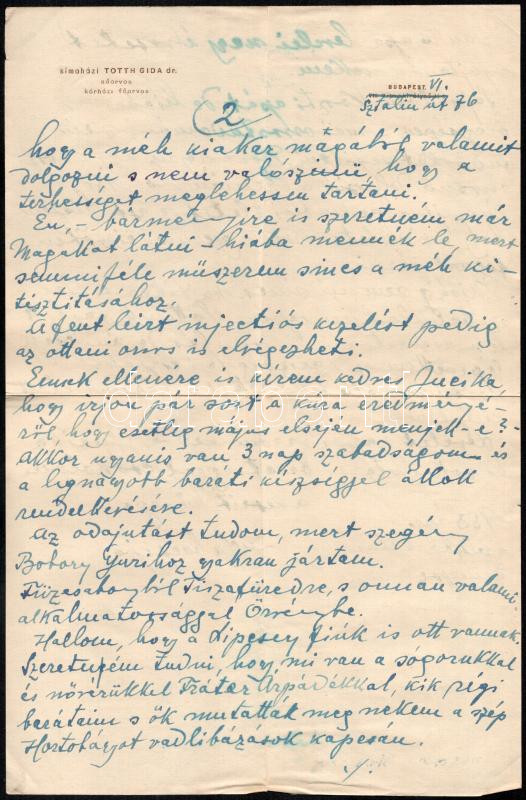 simaházi TOTTH GIDA dr.
nőorvos
kórházi főorvos
BUDAPEST, VI.
Sztalin út 76
2
hogy a méh kiakar magából valamit
dolgozni s nem valószinü, hogy a
terhességet meglehessen tartani.
En, – bármennyire is szeretném már
Magukat látni – hiába mennék le, mert
semmiféle müszerem sincs a méh ki-
tisztitásához.
A fent leirt injectiós kezelést pedig
az ottani orvos is elvégezheti.
Ennek ellenére is kérem kedves Jucika,
hogy irjon pár sort a kúra eredményé-
ről, hogy esetleg május elsején menjek-e?-
Akkor ugyanis van 3 nap szabadságom és
a legnagyobb baráti készséggel állok
rendelkezésére.
Az odajutást tudom, mert szegény
Bobory Gyurihoz gyakran jártam.
Füzesabonyból Tiszafüredre, s onnan valami
alkalmatossággal Örvénybe.
Hallom, hogy a Lipcsey fiúk is ott vannak.
Szeretném tudni, hogy mi van a sógorukkal
és nővérükkel Fráter Árpádékkal, kik régi
barátaim s ők mutatták meg nekem a szép
Hortobágyot vadlibázások kapcsán.